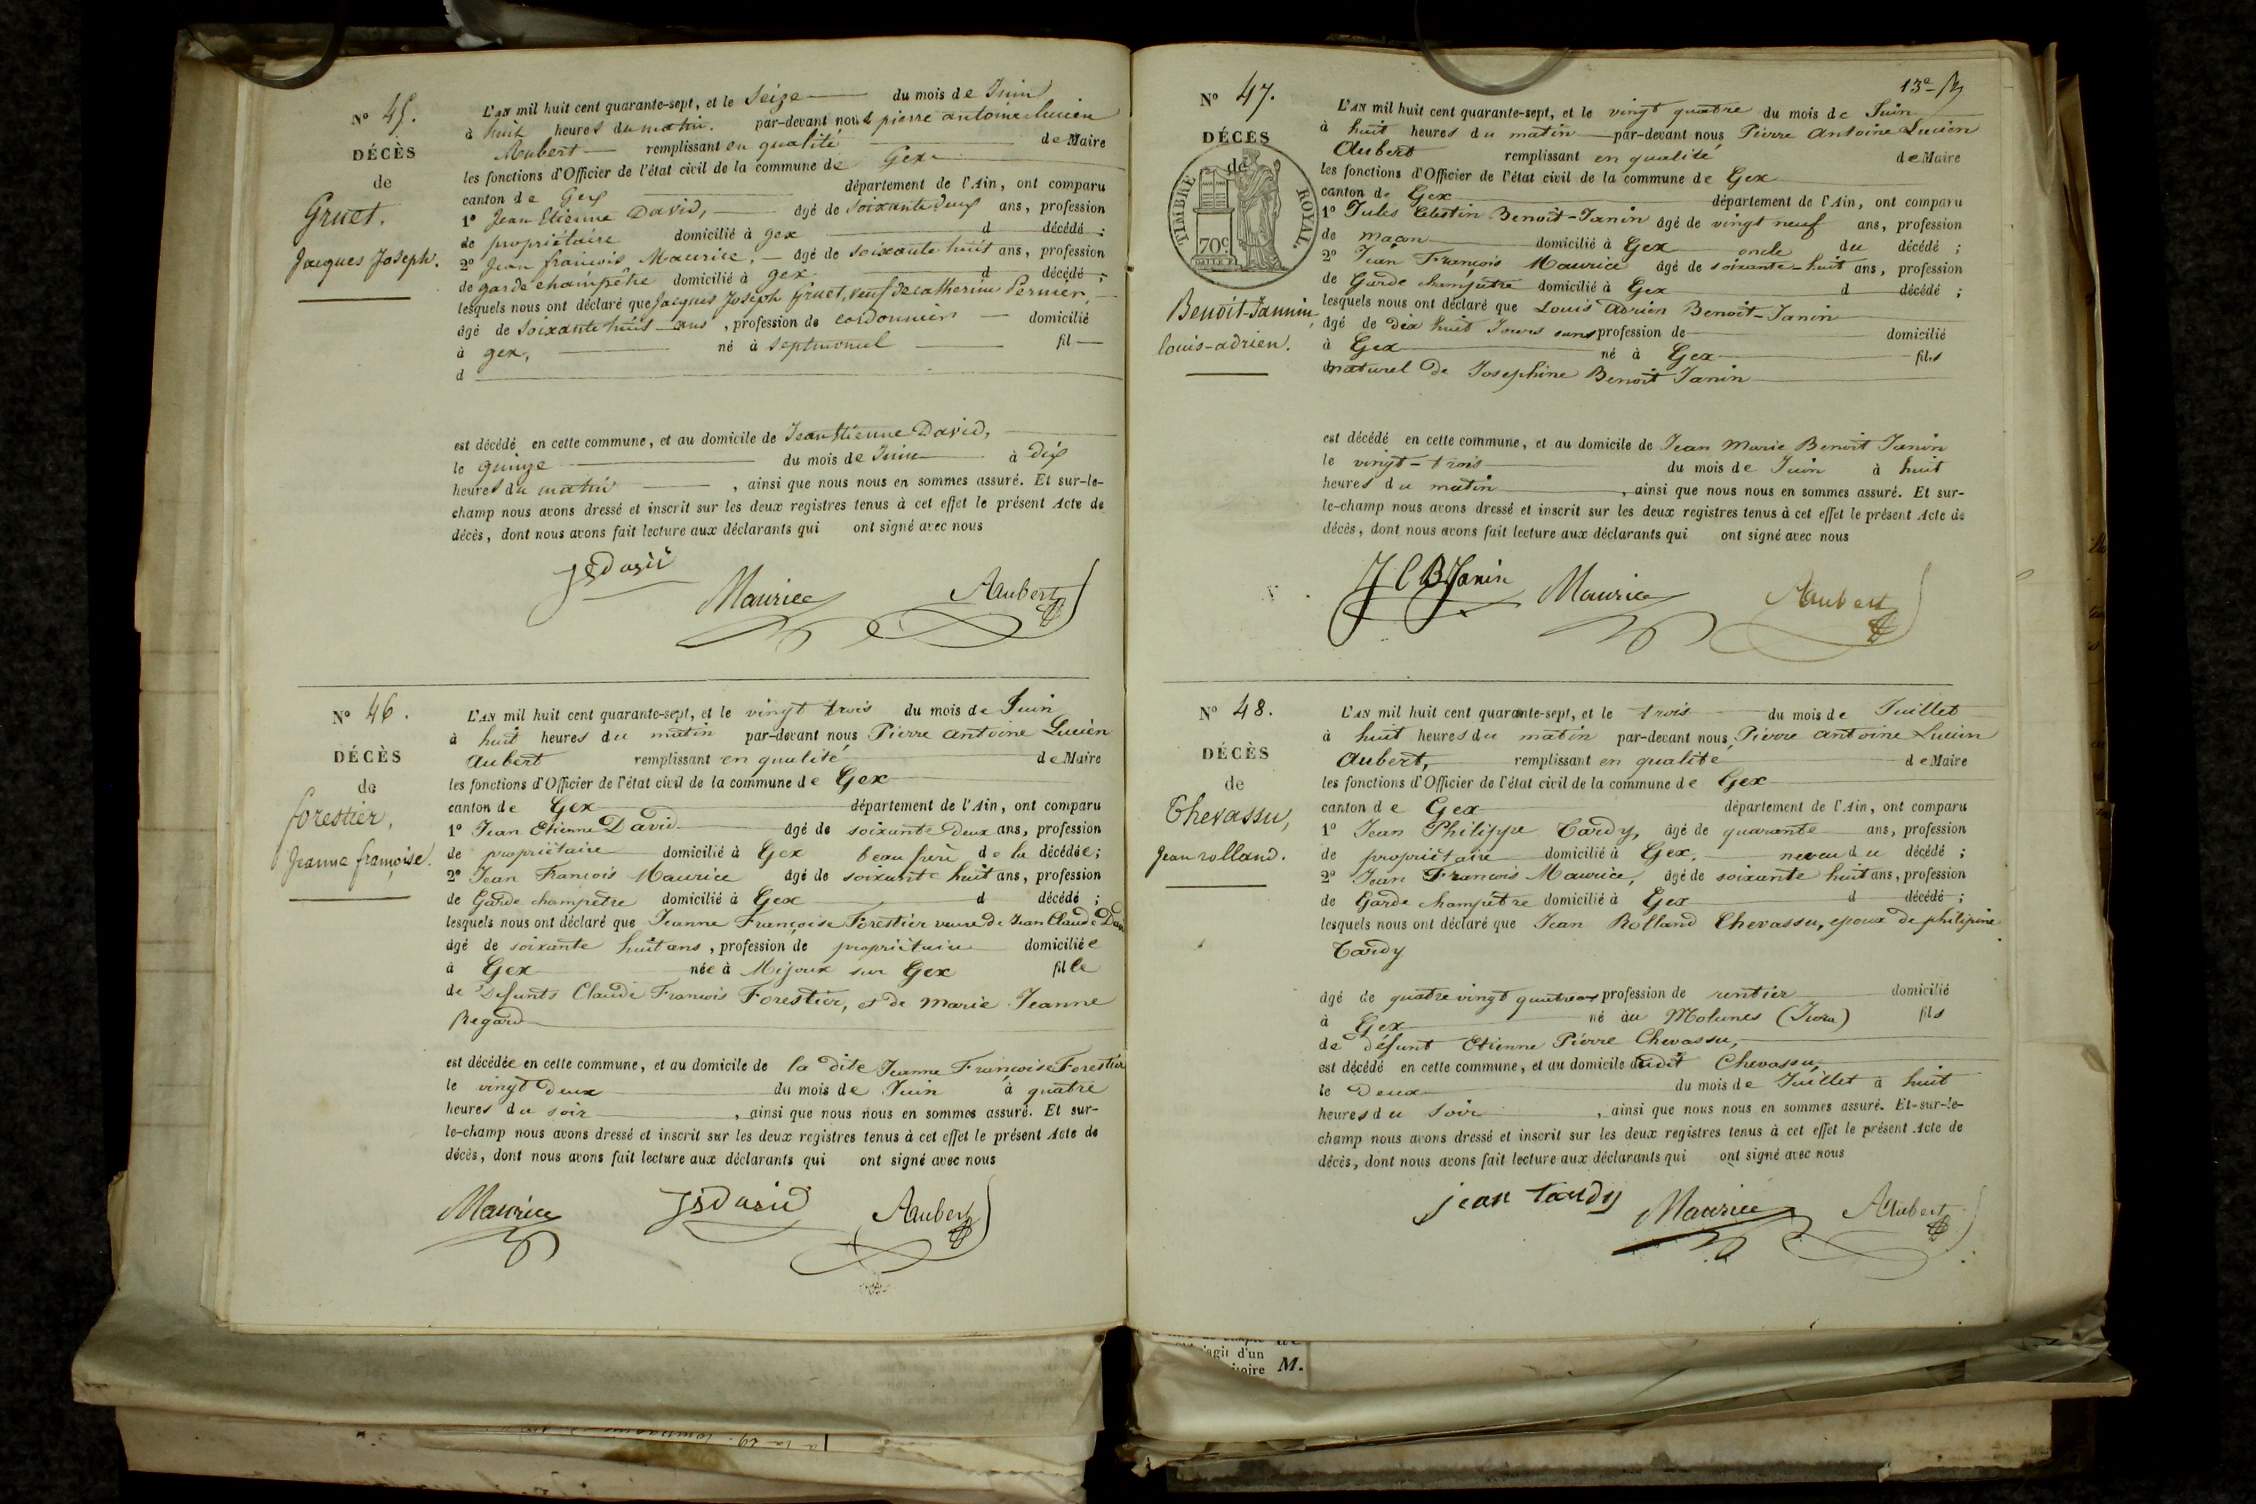 Nº 45.
DÉCÈS
de
Gruet,
Jacques Joseph.
L'AN mil huit cent quarante-sept, et le Seize du mois de Juin
à huit heures du matin. par-devant nous pierre antoine lucien
Aubert remplissant en qualité de Maire
les fonctions d'Officier de l'état civil de la commune de Gex
canton de Gex département de l'Ain, ont comparu
1º Jean Etienne David, âgé de soixante deux ans, profession
de propriétaire domicilié à gex d décédé ;
2º Jean françois Maurice, âgé de soixante huit ans, profession
de garde champêtre domicilié à gex d décédé ;
lesquels nous ont déclaré que Jacques Joseph Gruet, veuf de catherine Pernier,
âgé de soixante huit ans, profession de cordonnier domicilié
à gex, né à septmoncel fil
d
est décédé en cette commune, et au domicile de Jean Etienne David,
le quinze du mois de Juin à dix
heures du matin , ainsi que nous nous en sommes assuré. Et sur-le-
champ nous avons dressé et inscrit sur les deux registres tenus à cet effet le présent Acte de
décès, dont nous avons fait lecture aux déclarants qui ont signé avec nous
JEDavid Maurice Aubert
Nº 46.
DÉCÈS
de
forestier,
Jeanne françoise.
L'AN mil huit cent quarante-sept, et le vingt trois du mois de Juin
à huit heures du matin par-devant nous Pierre antoine Lucien
Aubert remplissant en qualité de Maire
les fonctions d'Officier de l'état civil de la commune de Gex
canton de Gex département de l'Ain, ont comparu
1º Jean Etienne David âgé de soixante deux ans, profession
de propriétaire domicilié à Gex beau frère de la décédée;
2º Jean François Maurice âgé de soixante huit ans, profession
de Garde champêtre domicilié à Gex d décédé ;
lesquels nous ont déclaré que Jeanne Françoise Forestier veuve de Jean Claude David
âgé de soixante huit ans, profession de propriétaire domiciliée
à Gex née à Mijoux sur Gex fille
de Defunts Claude François Forestier, et de Marie Jeanne
Regard
est décédée en cette commune, et au domicile de la dite Jeanne Françoise Forestier
le vingt deux du mois de Juin à quatre
heures du soir , ainsi que nous nous en sommes assuré. Et sur-
le-champ nous avons dressé et inscrit sur les deux registres tenus à cet effet le présent Acte de
décès, dont nous avons fait lecture aux déclarants qui ont signé avec nous
Maurice JEDavid Aubert
13e
Nº 47.
DÉCÈS
de
TIMBRE ROYAL
70c
Benoit-Jannin,
louis-adrien.
L'AN mil huit cent quarante-sept, et le vingt quatre du mois de Juin
à huit heures du matin par-devant nous Pierre Antoine Lucien
Aubert remplissant en qualité de Maire
les fonctions d'Officier de l'état civil de la commune de Gex
canton de Gex département de l'Ain, ont comparu
1º Jules Celestin Benoit-Janin âgé de vingt neuf ans, profession
de maçon domicilié à Gex oncle du décédé ;
2º Jean François Maurice âgé de soixante-huit ans, profession
de Garde champêtre domicilié à Gex d décédé ;
lesquels nous ont déclaré que Louis Adrien Benoit-Janin
âgé de dix huit Jours sans profession de domicilié
à Gex né à Gex fils
naturel de Josephine Benoit Janin
est décédé en cette commune, et au domicile de Jean Marie Benoit Janin
le vingt-trois du mois de Juin à huit
heures du matin , ainsi que nous nous en sommes assuré. Et sur-
le-champ nous avons dressé et inscrit sur les deux registres tenus à cet effet le présent Acte de
décès, dont nous avons fait lecture aux déclarants qui ont signé avec nous
J C B Janin Maurice Aubert
Nº 48.
DÉCÈS
de
Chevassu,
Jean rolland.
L'AN mil huit cent quarante-sept, et le trois du mois de Juillet
à huit heures du matin par-devant nous Pierre antoine Lucien
Aubert, remplissant en qualité de Maire
les fonctions d'Officier de l'état civil de la commune de Gex
canton de Gex département de l'Ain, ont comparu
1º Jean Philippe Tardy, âgé de quarante ans, profession
de propriétaire domicilié à Gex, neveu du décédé ;
2º Jean François Maurice, âgé de soixante huit ans, profession
de Garde champêtre domicilié à Gex d décédé ;
lesquels nous ont déclaré que Jean Rolland Chevassu, epoux de philipine
Tardy
âgé de quatre vingt quatre ans profession de rentier domicilié
à Gex né au Molunes (Jura) fils
de défunt Etienne Pierre Chevassu,
est décédé en cette commune, et au domicile dudit Chevassu,
le Deux du mois de Juillet à huit
heures du soir , ainsi que nous nous en sommes assuré. Et-sur-le-
champ nous avons dressé et inscrit sur les deux registres tenus à cet effet le présent Acte de
décès, dont nous avons fait lecture aux déclarants qui ont signé avec nous
jean tardy Maurice Aubert
agit d'un
M.